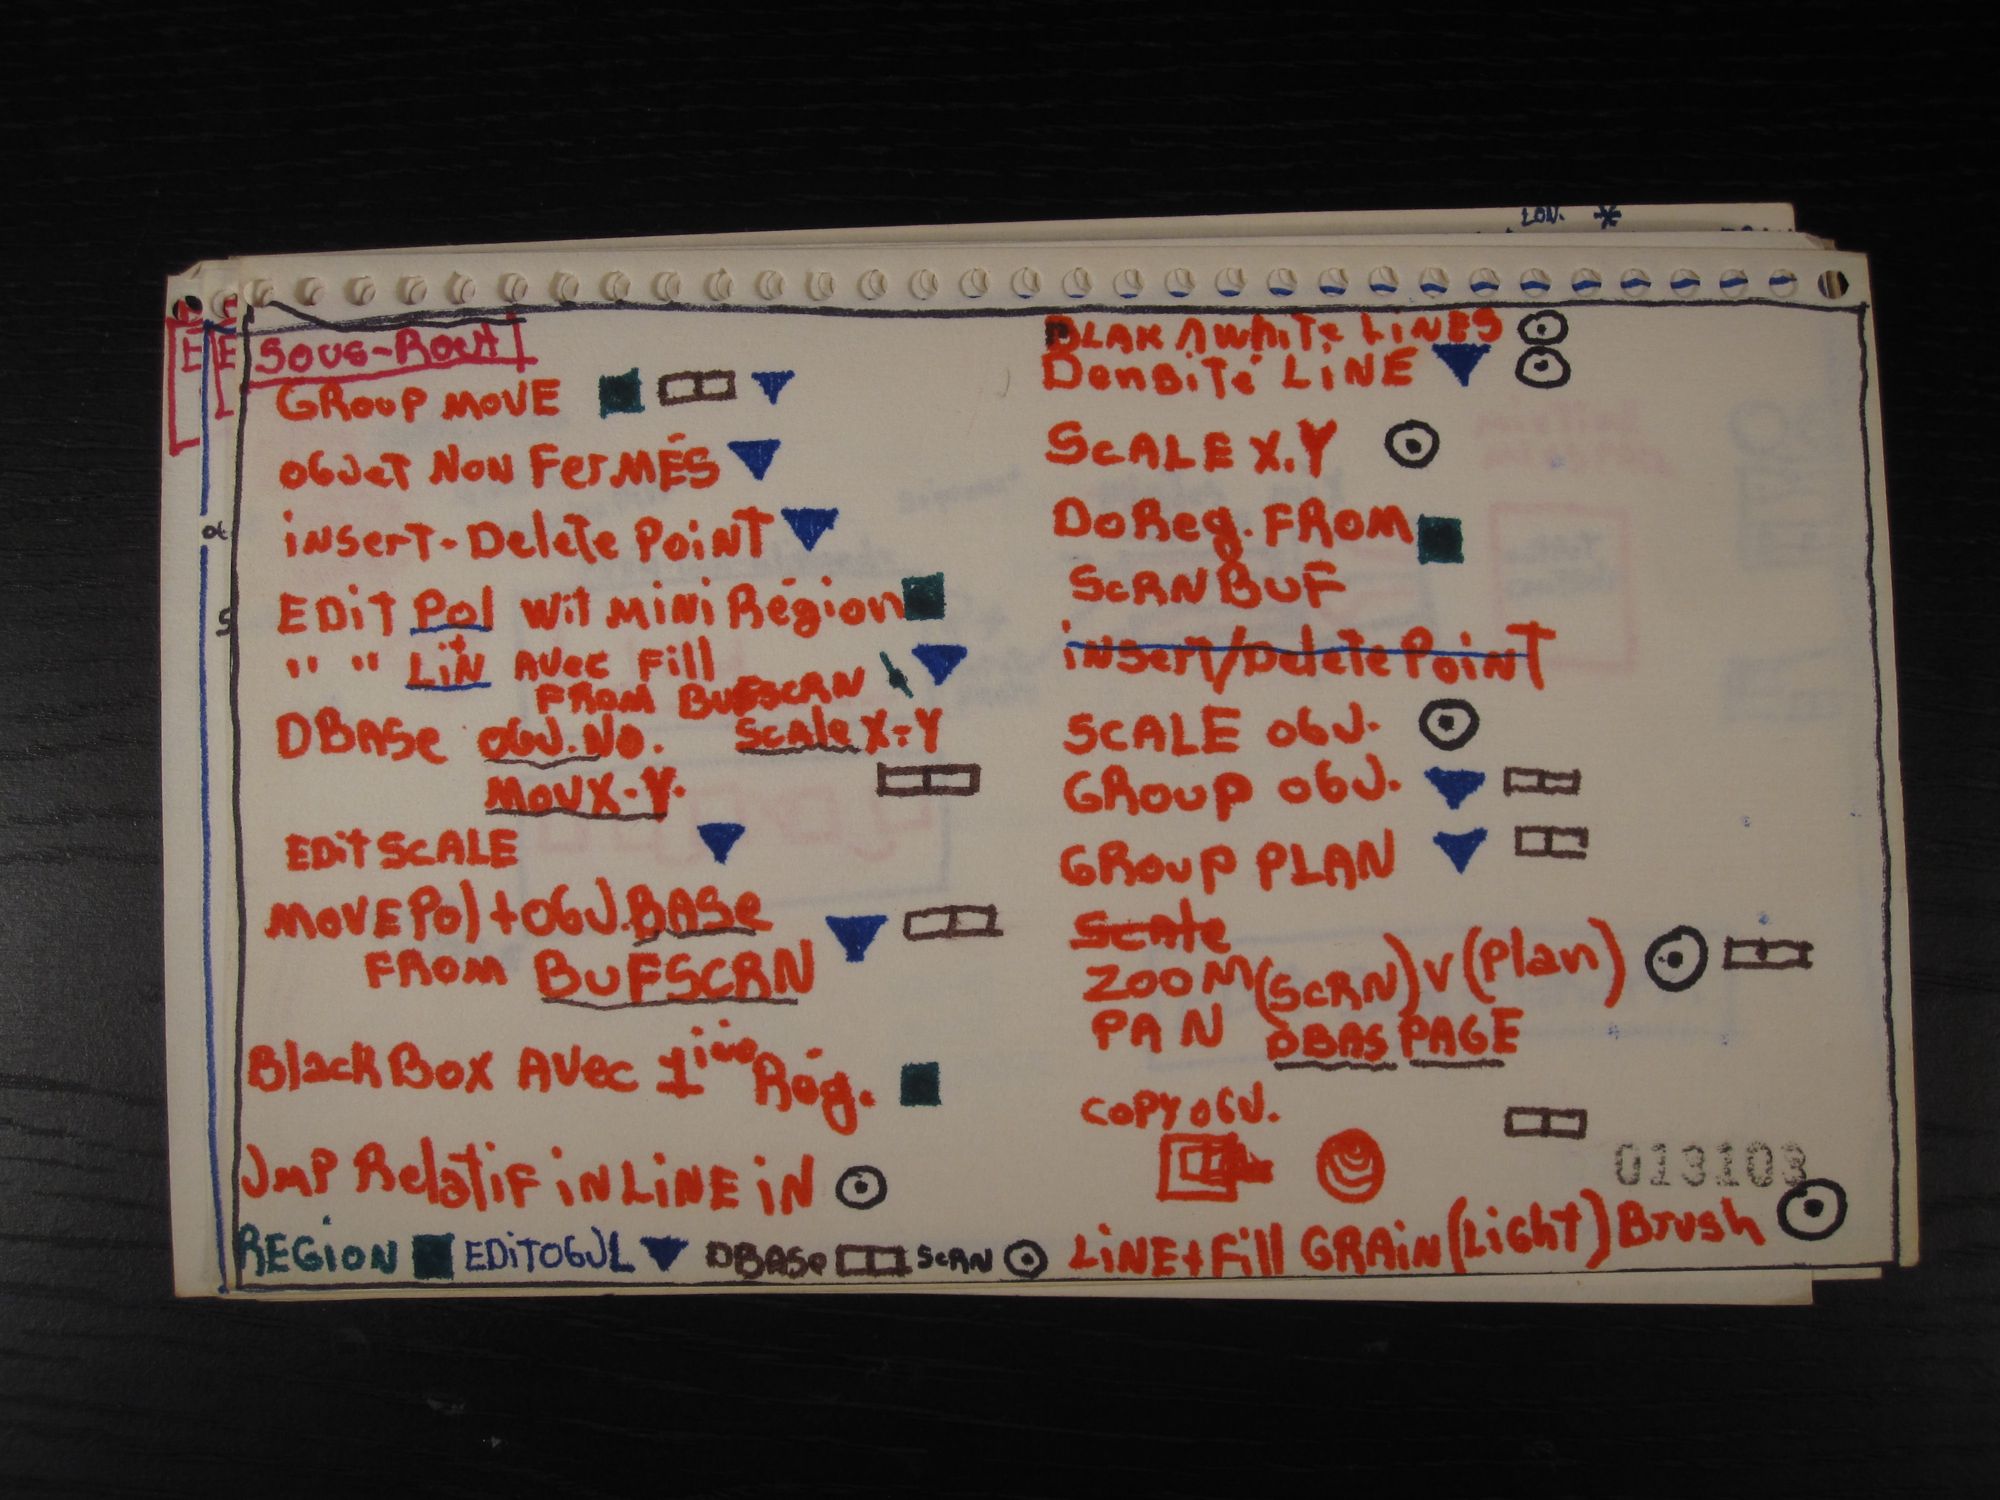 SOUS-ROUT
GROUP MOVE
OBJET NON FERMÉS
INSERT-DELETE POINT
EDIT POL WIT MINI RÉGION
" " LIN AVEC FILL
FROM BUFSCRN
DBASE OBJ.NO. SCALE X-Y
MOUX-Y.
EDIT SCALE
MOVE POL+OBJ.BASE
FROM BUFSCRN
BLACK BOX AVEC 1ière RÉG.
JMP RELATIF IN LINE IN
REGION EDITOBJL DBASE SCRN
BLAK Λ WHITE LINES
DENSITÉ LINE
SCALE X.Y
DO REG. FROM
SCRNBUF
INSERT/DELETE POINT
SCALE OBJ.
GROUP OBJ.
GROUP PLAN
SCALE
ZOOM (SCRN) V (PLAN)
PAN DBAS PAGE
COPY OBJ.
013103
LINE+FILL GRAIN (LIGHT) BRUSH